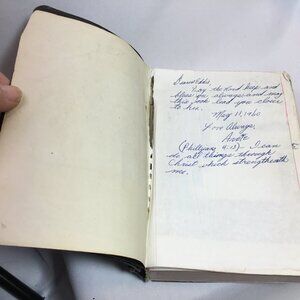 Dearest Eddie
May the Lord keep and
bless you always and may
this book lead you closer
to him.
May 11, 1960
Love Always,
(Phillipians 4:13) - I can
do all things through
Christ which strengtheneth
me.